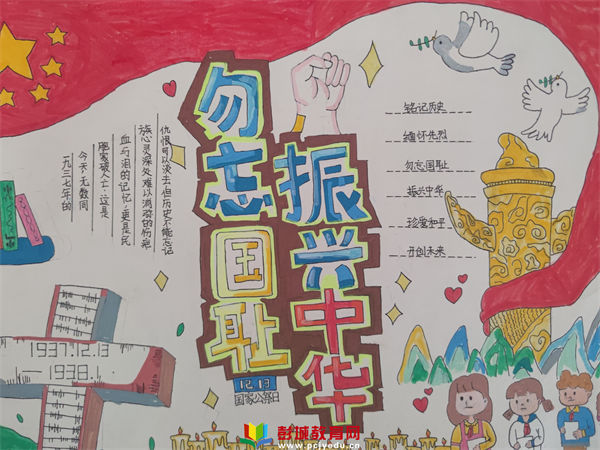 一九三七年的
今天,无数同
胞家破人亡,这是
血与泪的记忆,更是民
族心灵深处难以消磨的伤疤
仇恨可以淡去,但历史不能忘记
勿忘国耻
振兴中华
12.13
国家公祭日
铭记历史
缅怀先烈
勿忘国耻
振兴中华
珍爱和平
开创未来
1937.12.13
—1938.1
彭城教育网
www.pcjyedu.cn